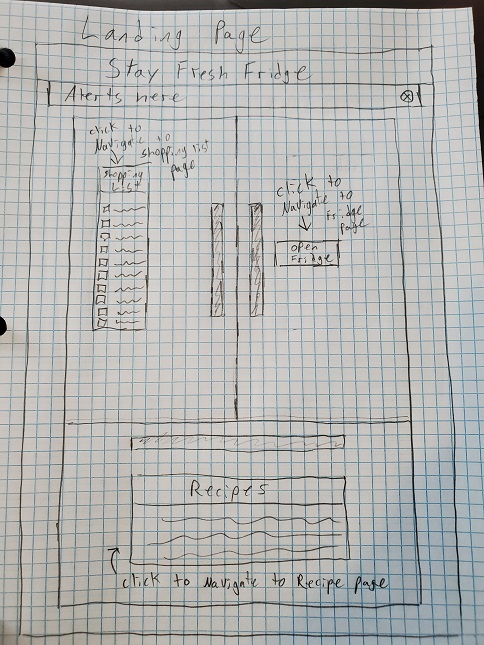 Landing Page
Stay Fresh Fridge
Alerts here
click to
Navigate to
shopping list
page
shopping
List
click to
Navigate to
Fridge
page
open
Fridge
Recipes
click to Navigate to Recipe page